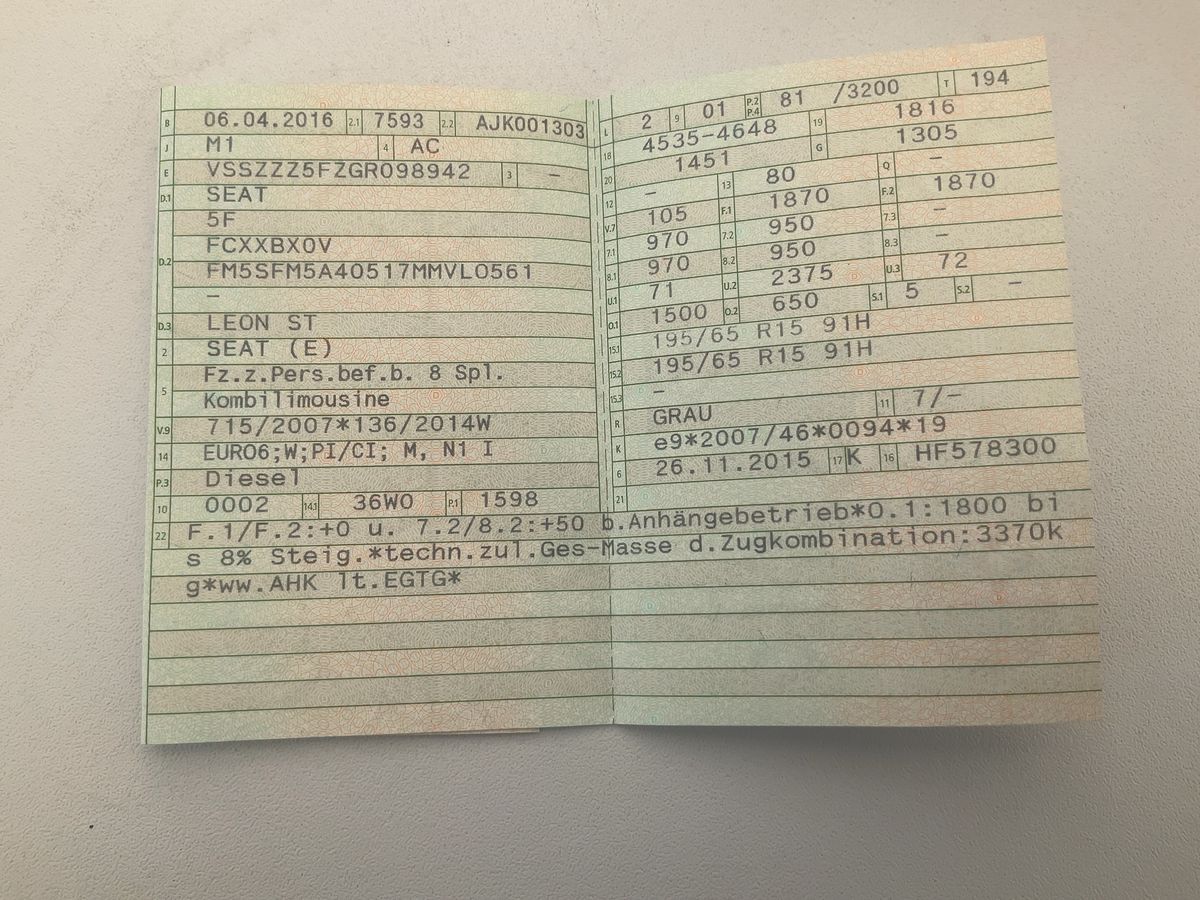 B 06.04.2016 2.1 7593 2.2 AJK001303
J M1 4 AC
E VSSZZZ5FZGR098942 3 –
D.1 SEAT
5F
D.2 FCXXBX0V
FM5SFM5A40517MMVL0561
–
D.3 LEON ST
2 SEAT (E)
5 Fz.z.Pers.bef.b. 8 Spl.
Kombilimousine
V.9 715/2007*136/2014W
14 EURO6;W;PI/CI; M, N1 I
P.3 Diesel
10 0002 14.1 36W0 P.1 1598
L 2 9 01 P.2 P.4 81 /3200 T 194
18 4535-4648 19 1816
20 1451 G 1305
12 – 13 80 Q –
V.7 105 F.1 1870 F.2 1870
7.1 970 7.2 950 7.3 –
8.1 970 8.2 950 8.3 –
U.1 71 U.2 2375 U.3 72
O.1 1500 O.2 650 S.1 5 S.2 –
15.1 195/65 R15 91H
15.2 195/65 R15 91H
15.3 –
R GRAU 11 7/–
K e9*2007/46*0094*19
6 26.11.2015 17 K 16 HF578300
21
22 F.1/F.2:+0 u. 7.2/8.2:+50 b.Anhängebetrieb*O.1:1800 bi
s 8% Steig.*techn.zul.Ges-Masse d.Zugkombination:3370k
g*ww.AHK lt.EGTG*